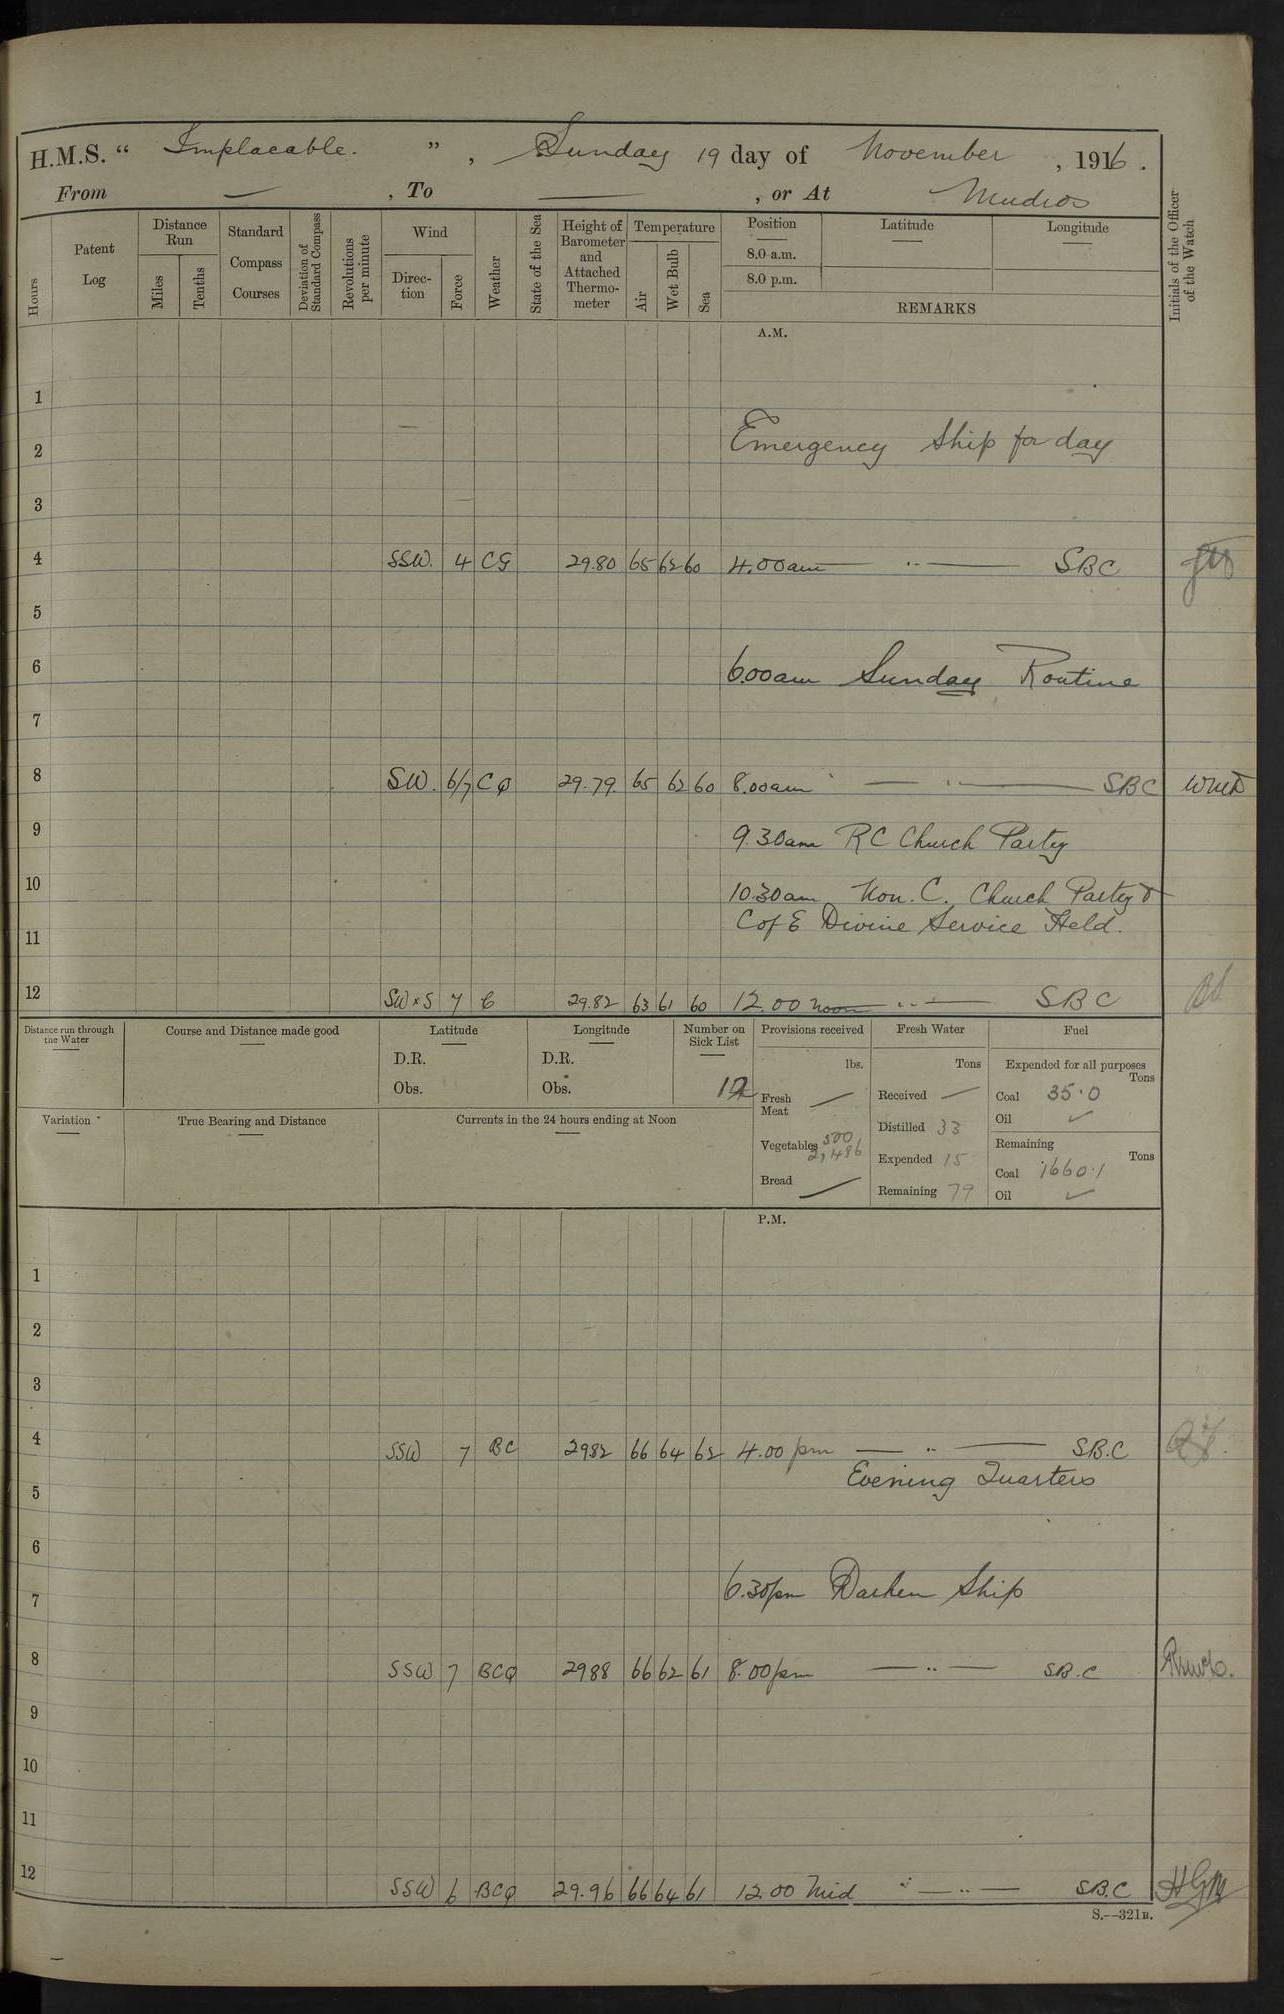 H.M.S. “ Implacable. ” , Sunday 19 day of November , 1916 .
From — , To — , or At Mudros
Hours
Patent Log
Distance Run
Miles
Tenths
Standard Compass Courses
Deviation of Standard Compass
Revolutions per minute
Wind
Direction
Force
Weather
State of the Sea
Height of Barometer and Attached Thermometer
Temperature
Air
Wet Bulb
Sea
Position
8.0 a.m.
8.0 p.m.
Latitude
Longitude
REMARKS
Initials of the Officer of the Watch
A.M.
1
2 Emergency Ship for day
3
4 SSW. 4 CG 29.80 65 62 60 4.00am — .. — SBC
5
6 6.00am Sunday Routine
7
8 SW. 6/7 CQ 29.79. 65 62 60 8.00am — .. — SBC
9 9.30am RC Church Party
10 10.30am Non. C. Church Party &
11 C of E Divine Service Held.
12 SW x S 7 C 29.82 63 61 60 12.00 noon .. — SBC
Distance run through the Water
Course and Distance made good
Latitude
D.R.
Obs.
Longitude
D.R.
Obs.
Number on Sick List
12
Provisions received
lbs.
Fresh Meat —
Vegetables 500
2,486
Bread —
Fresh Water
Tons
Received —
Distilled 33
Expended 15
Remaining 79
Fuel
Expended for all purposes
Tons
Coal 35.0
Oil ✓
Remaining
Tons
Coal 1660.1
Oil ✓
Variation
True Bearing and Distance
Currents in the 24 hours ending at Noon
P.M.
1
2
3
4 SSW 7 BC 2982 66 64 62 4.00 pm — .. — S.B.C
Evening Quarters
5
6
6.30pm Darken Ship
7
8 SSW 7 BCQ 2988 66 62 61 8.00pm — .. — S.B.C
9
10
11
12 SSW 6 BCQ 29.96 66 64 61 12.00 Mid — .. — S.B.C HGM
S.--321B.